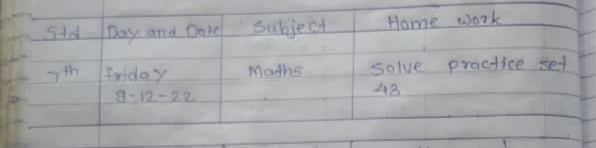 Std Day and Date Subject Home work
7th friday Maths Solve practice set
9-12-22 43